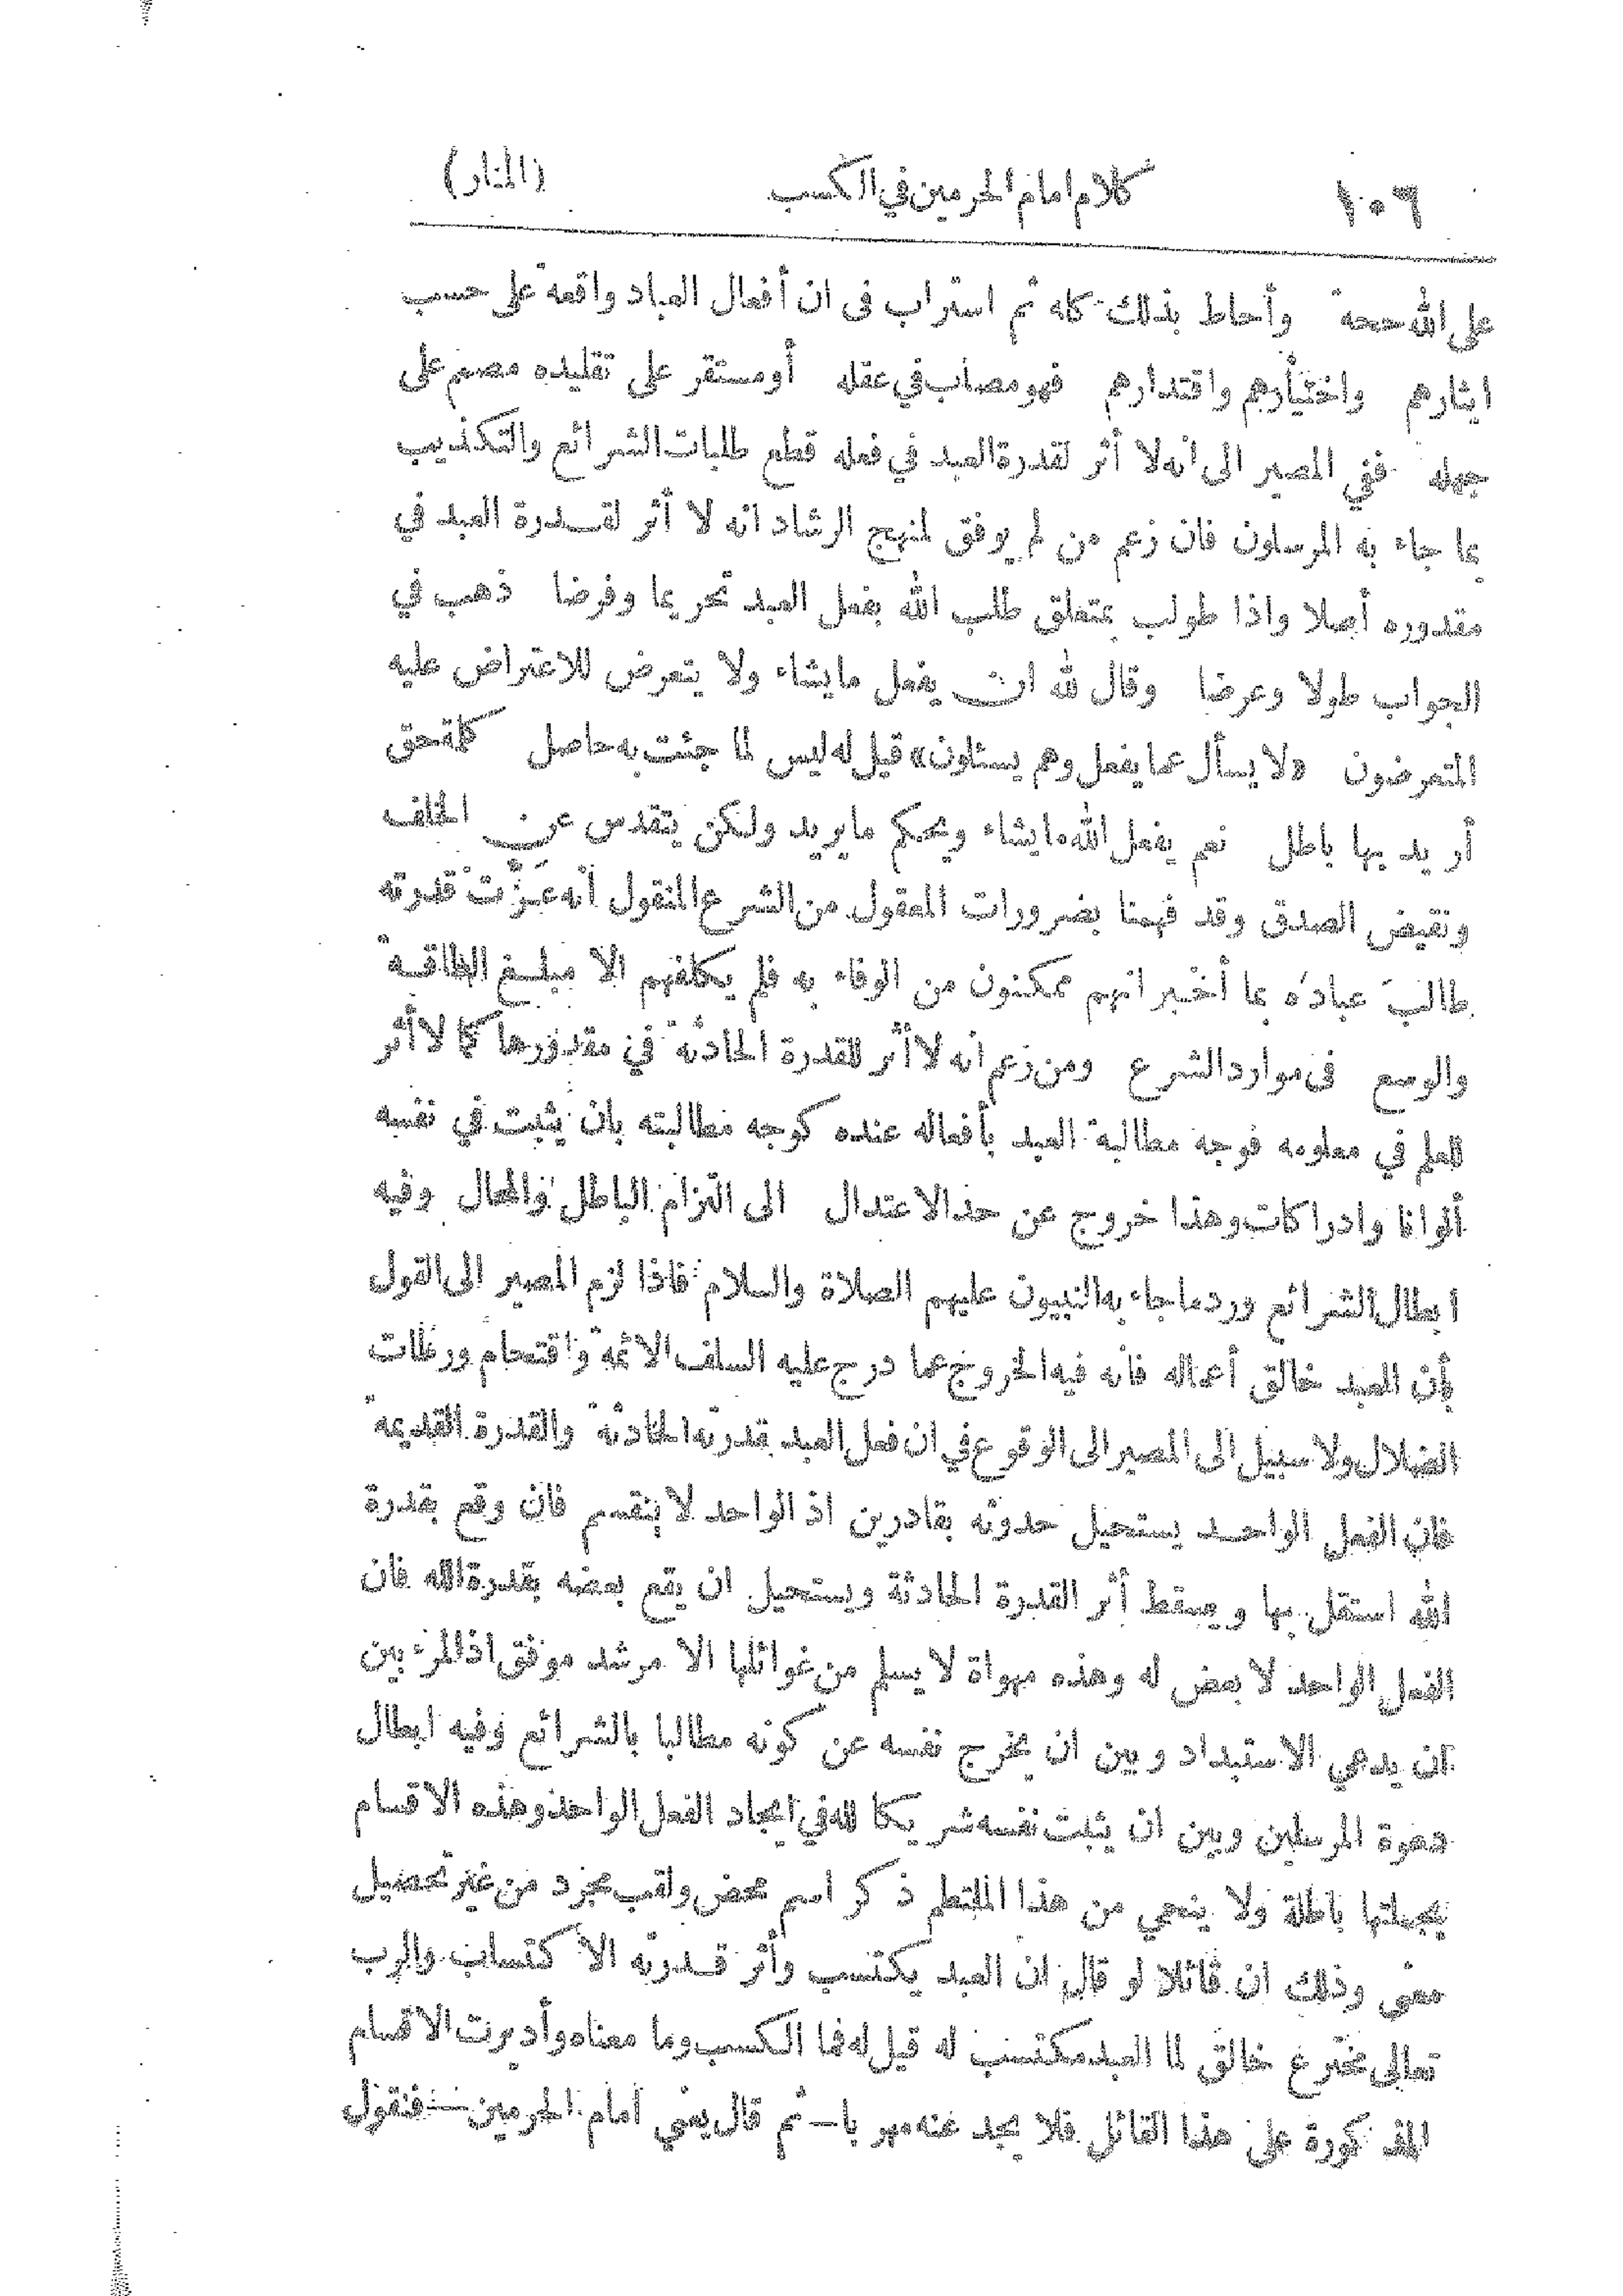 ١٠٦ كلام امام الحرمين في الكسب (المنار)
على الله حجة وأحاط بذلك كله ثم استراب فى ان أفعال العباد واقعة على حسب
ايثارهم واختيارهم واقتدارهم فهو مصاب في عقله أو مستقر على تقليده مصمم على
جهله ففي المصير الى انه لا أثر لقدرة العبد في فعله قطع طلبات الشرائع والتكذيب
بما جاء به المرسلون فان زعم من لم يوفق لمنهج الرشاد انه لا أثر لقدرة العبد في
مقدوره أصلا واذا طولب بمتعلق طلب الله بفعل العبد تحريما وفرضا ذهب في
الجواب طولا وعرضا وقال لله ان يفعل ما يشاء ولا يتعرض للاعتراض عليه
المتعرضون «لا يسأل عما يفعل وهم يسئلون» قيل له ليس لما جئت به حاصل كلمة حق
أريد بها باطل نعم يفعل الله ما يشاء ويحكم ما يريد ولكن يتقدس عن الخلف
ونقيض الصدق وقد فهمنا بضرورات المعقول من الشرع المنقول أنه عزّت قدرته
طالبَ عباده بما أخبر انهم ممكنون من الوفاء به فلم يكلفهم الا مبلغ الطاقة
والوسع فى موارد الشرع ومن زعم أنه لا أثر للقدرة الحادثة في مقدورها كما لا أثر
للعلم في معلومه فوجه مطالبة العبد بأفعاله عنده كوجه مطالبته بان يثبت في نفسه
ألوانا وادراكات وهذا خروج عن حد الاعتدال الى التزام الباطل والمحال وفيه
ابطال الشرائع ورد ما جاء به النبيون عليهم الصلاة والسلام فاذا لزم المصير الى القول
بأن العبد خالق أعماله فانه فيه الخروج عما درج عليه السلف الائمة واقتحام ورطات
الضلال ولا سبيل الى المصير الى الوقوع في ان فعل العبد بقدرته الحادثة والقدرة القديمة
فان الفعل الواحد يستحيل حدوثه بقادرين اذ الواحد لا ينقسم فان وقع بقدرة
الله استقل بها ويسقط أثر القدرة الحادثة ويستحيل ان يقع بعضه بقدرة الله فان
الفعل الواحد لا بعض له وهذه مهواة لا يسلم من غوائلها الا مرشد موفق اذ المرء بين
ان يدعي الاستبداد وبين ان يخرج نفسه عن كونه مطالبا بالشرائع وفيه ابطال
دعوة المرسلين وبين ان يثبت نفسه شريكا لله في ايجاد الفعل الواحد وهذه الاقسام
بجملتها باطلة ولا ينجي من هذا الملتطم ذكر اسم محض ولقب مجرد من غير تحصيل
معنى وذلك ان قائلا لو قال ان العبد يكتسب وأثر قدرته الاكتساب والرب
تعالى مخترع خالق لما العبد مكتسب له قيل له فما الكسب وما معناه وأديرت الاقسام
المذكورة على هذا القائل فلا يجد عنه مهربا — ثم قال يعني امام الحرمين — فنقول